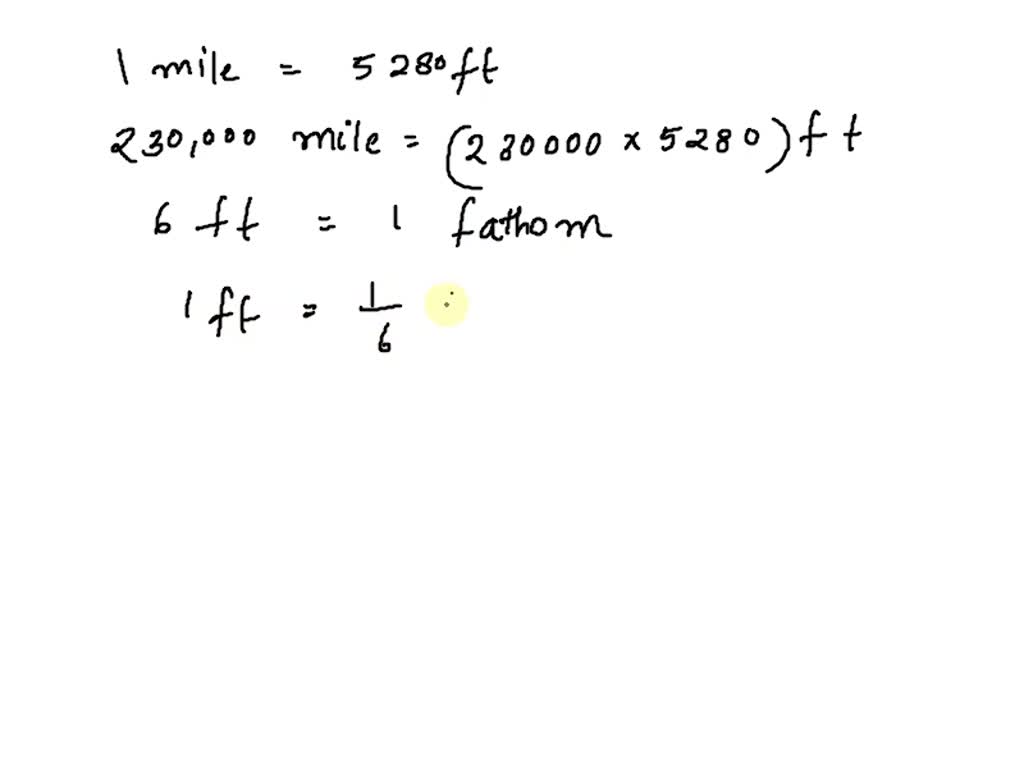 1 mile = 5280 ft
230,000 mile = (230000 x 5280) ft
6 ft = 1 fathom
1 ft = 1/6